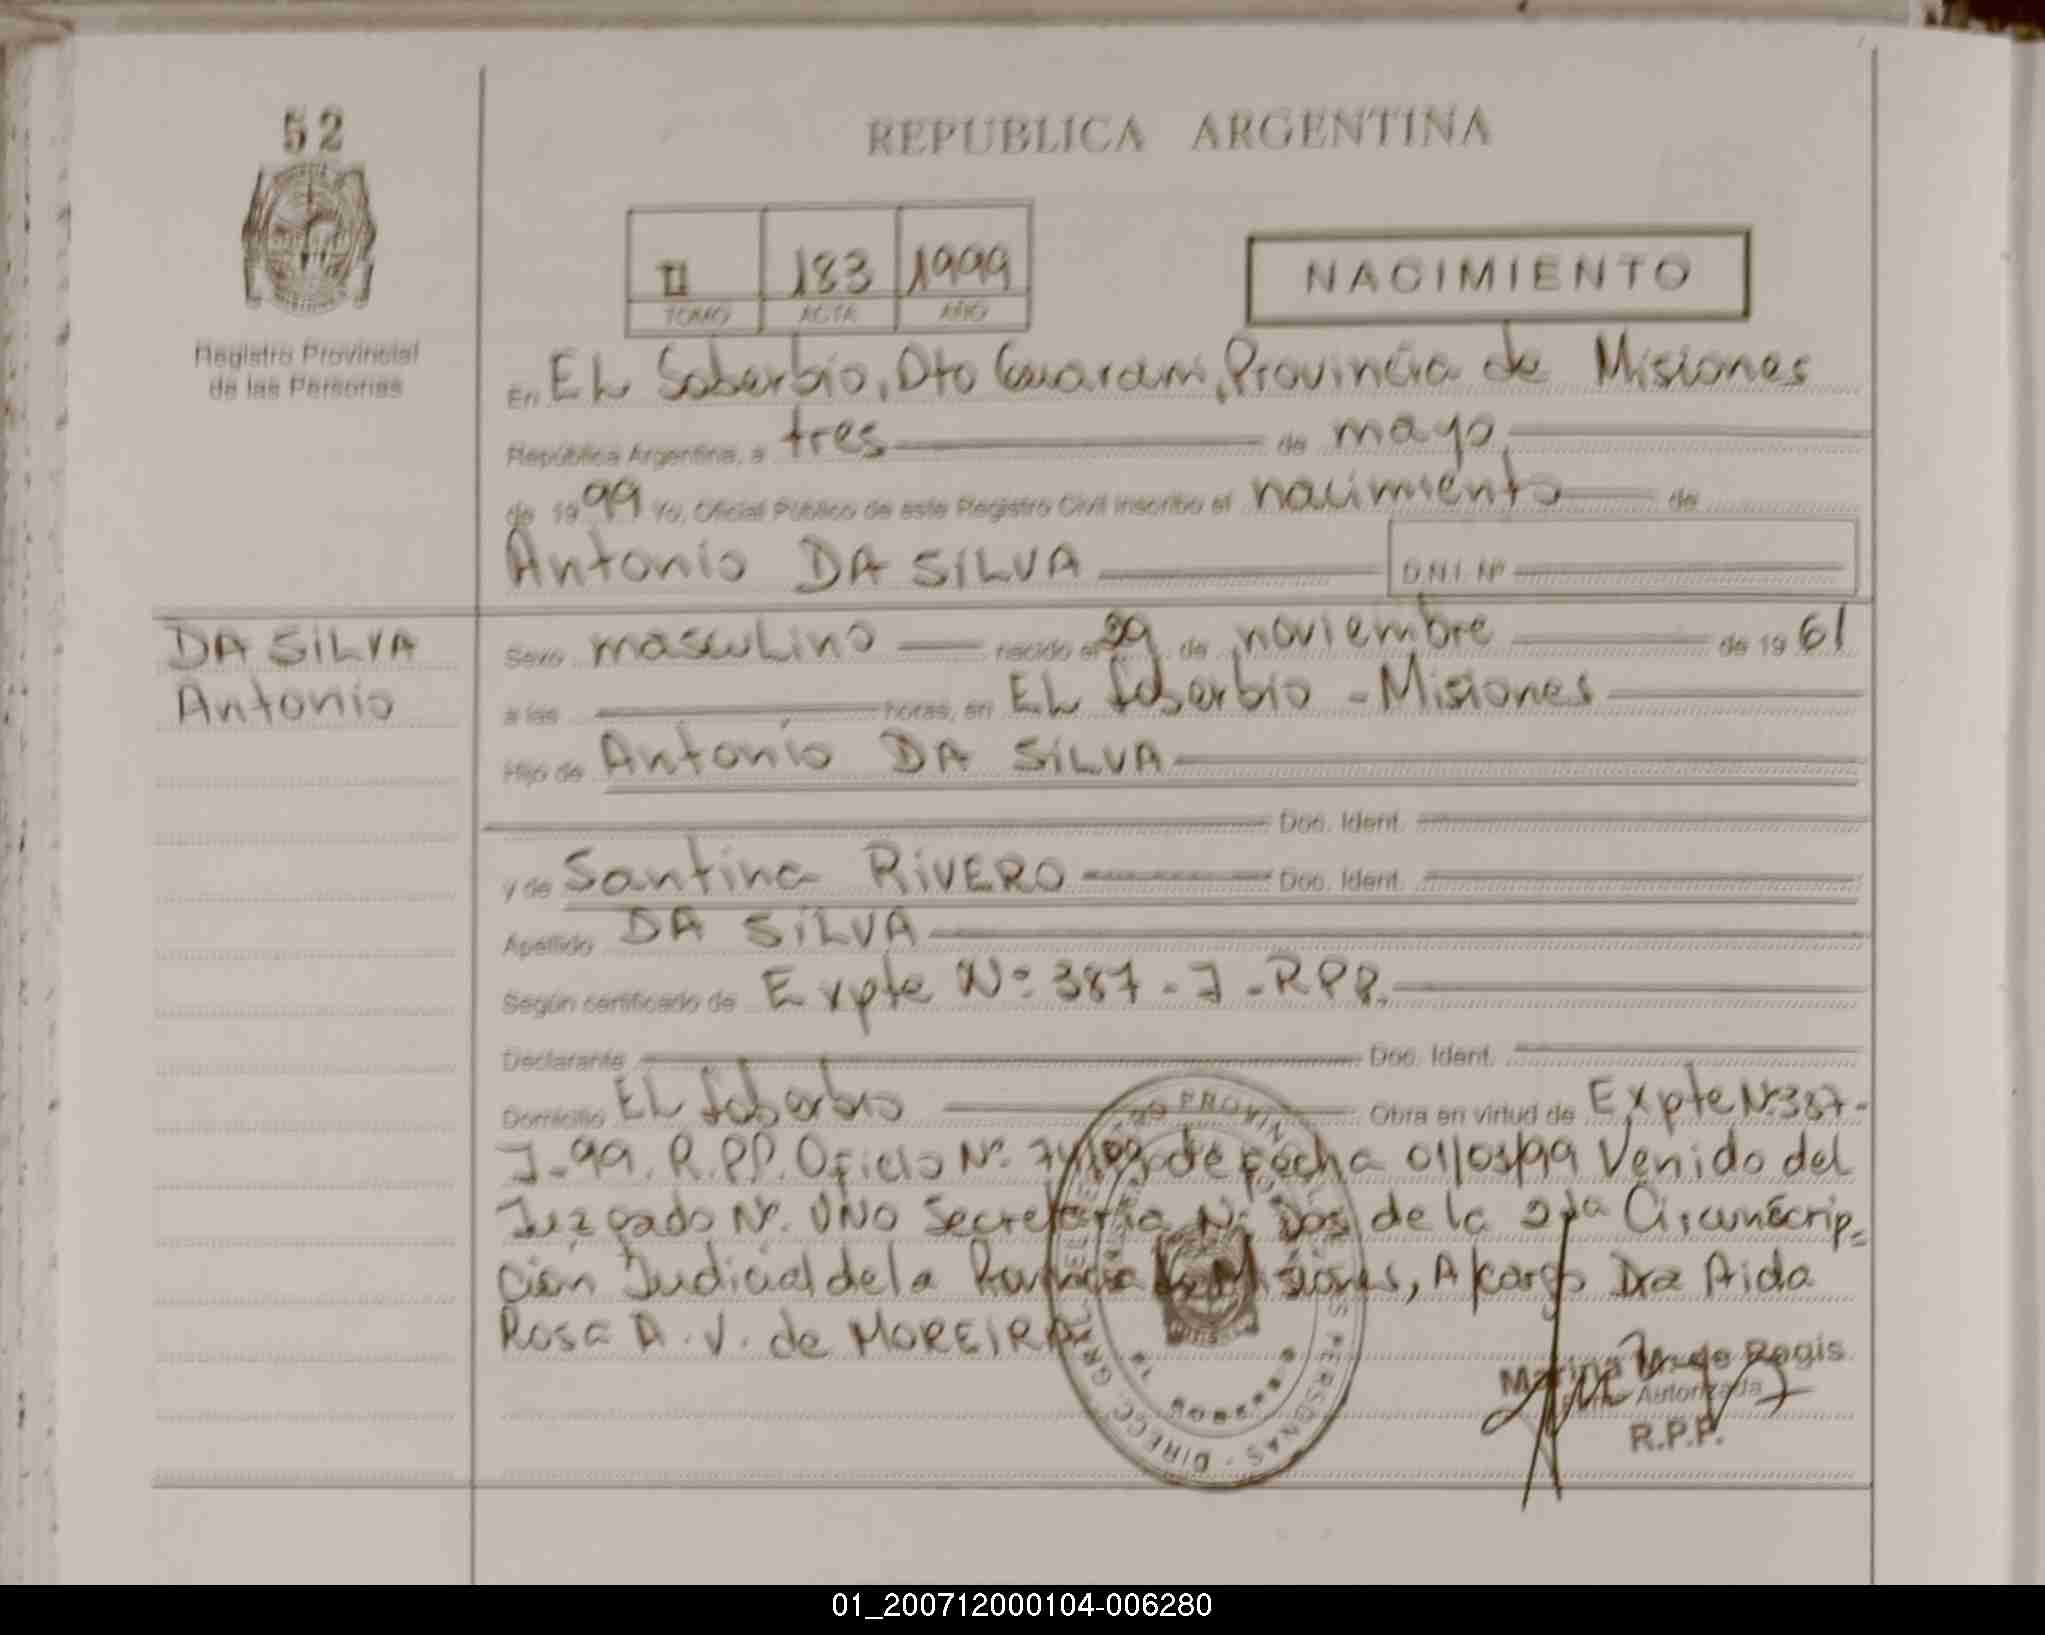 52
REPUBLICA ARGENTINA
II 183 1999
TOMO ACTA AÑO
NACIMIENTO
Registro Provincial
de las Personas
En EL Soberbio, Dto Guarani, Provincia de Misiones
República Argentina, a tres de mayo
de 1999 Yo, Oficial Público de este Registro Civil inscribo el nacimiento de
Antonio DA SILVA D.N.I. Nº
DA SILVA
Antonio
Sexo masculino nacido el 29 de noviembre de 1961
a las horas, en EL Soberbio - Misiones
Hijo de Antonio DA SILVA
Doc. Ident.
y de Santina RIVERO Doc. Ident.
Apellido DA SILVA
Según certificado de Expte Nº 387-J-RPP.
Declarante Doc. Ident.
Domicilio EL Soberbio Obra en virtud de Expte Nº 387-
J-99. R.PP. Oficio Nº de fecha Venido del
Juzgado Nº. UNO Secretaria Nº Dos de la 2da Circunscrip=
ción Judicial de la Provincia de Misiones, A cargo Dra Aida
Rosa A. V. de MOREIRA
Marina Regis
Autorizada
R.P.P.
01_200712000104-006280